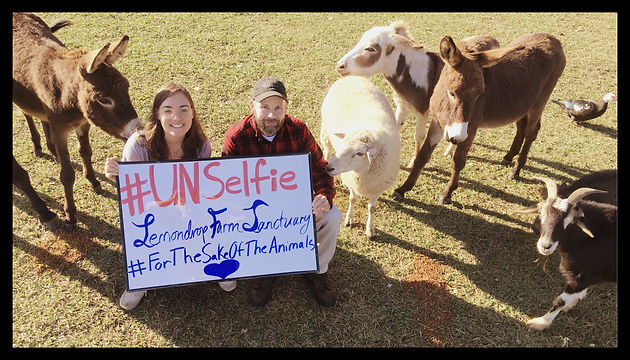 #UNSelfie
Lemondrop Farm Sanctuary
#ForTheSakeOfTheAnimals